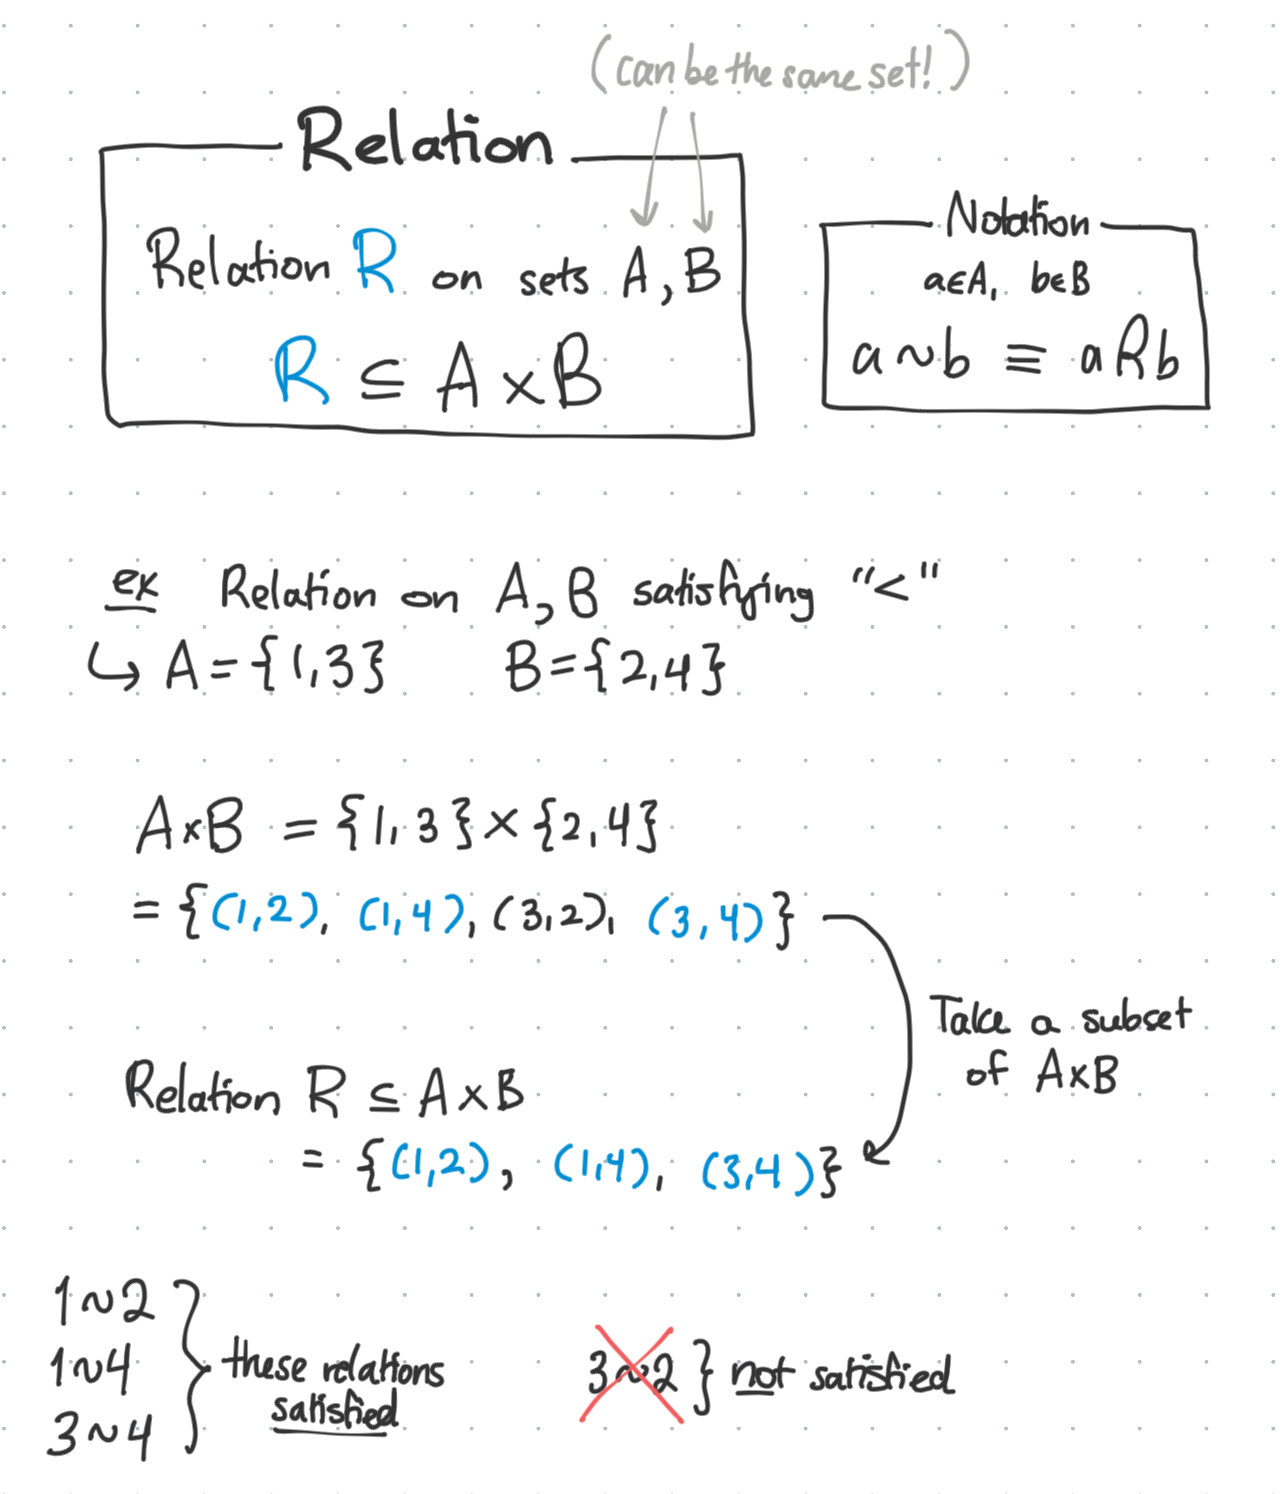 (can be the same set!)
Relation
Relation R on sets A, B
R ⊆ A × B
Notation
a∈A, b∈B
a ~ b ≡ aRb
ex Relation on A, B satisfying "<"
↳ A = {1,3} B = {2,4}
A×B = {1,3} × {2,4}
= {(1,2), (1,4), (3,2), (3,4)}
Take a subset
of A×B
Relation R ⊆ A×B
= {(1,2), (1,4), (3,4)}
1~2
1~4
3~4
} these relations
satisfied
3~2 } not satisfied